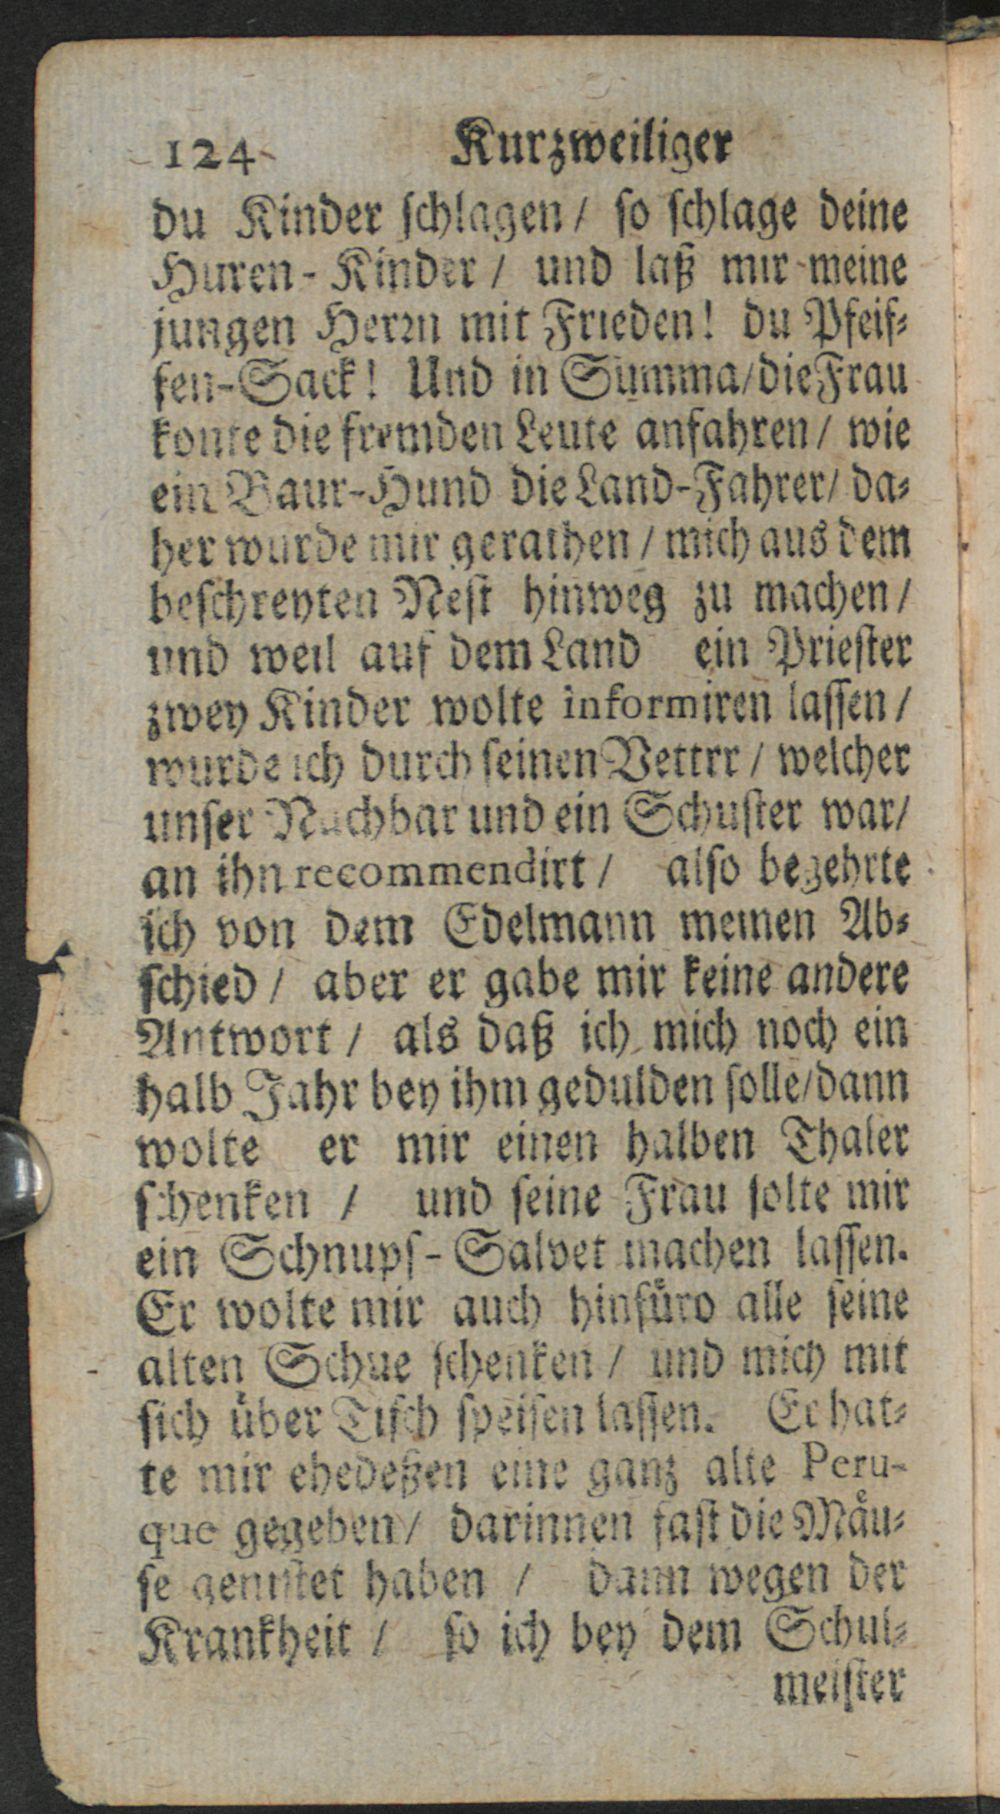 124 Kurzweiliger
du Kinder ſchlagen / ſo ſchlage deine
Huren-Kinder / und laß mir meine
jungen Herꝛn mit Frieden! du Pfeif⸗
fen-Sack! Und in Summa/die Frau
konte die fremden Leute anfahren / wie
ein Baur-Hund die Land-Fahrer/ da⸗
her wurde mir gerathen / mich aus dem
beſchreyten Neſt hinweg zu machen /
und weil auf dem Land ein Prieſter
zwey Kinder wolte informiren laſſen /
wurde ich durch ſeinen Vettrr / welcher
unſer Nachbar und ein Schuſter war/
an ihn recommendirt / alſo begehrte
ich von dem Edelmann meinen Ab⸗
ſchied / aber er gabe mir keine andere
Antwort / als daß ich mich noch ein
halb Jahr bey ihm gedulden ſolle/dann
wolte er mir einen halben Thaler
ſchenken / und ſeine Frau ſolte mir
ein Schnupſ-Salvet machen laſſen.
Er wolte mir auch hinfüro alle ſeine
alten Schue ſchenken / und mich mit
ſich über Tiſch ſpeiſen laſſen. Er hat⸗
te mir ehedeßen eine ganz alte Peru-
que gegeben / darinnen faſt die Mäu⸗
ſe geniſtet haben / dann wegen der
Krankheit / ſo ich bey dem Schul⸗
meiſter